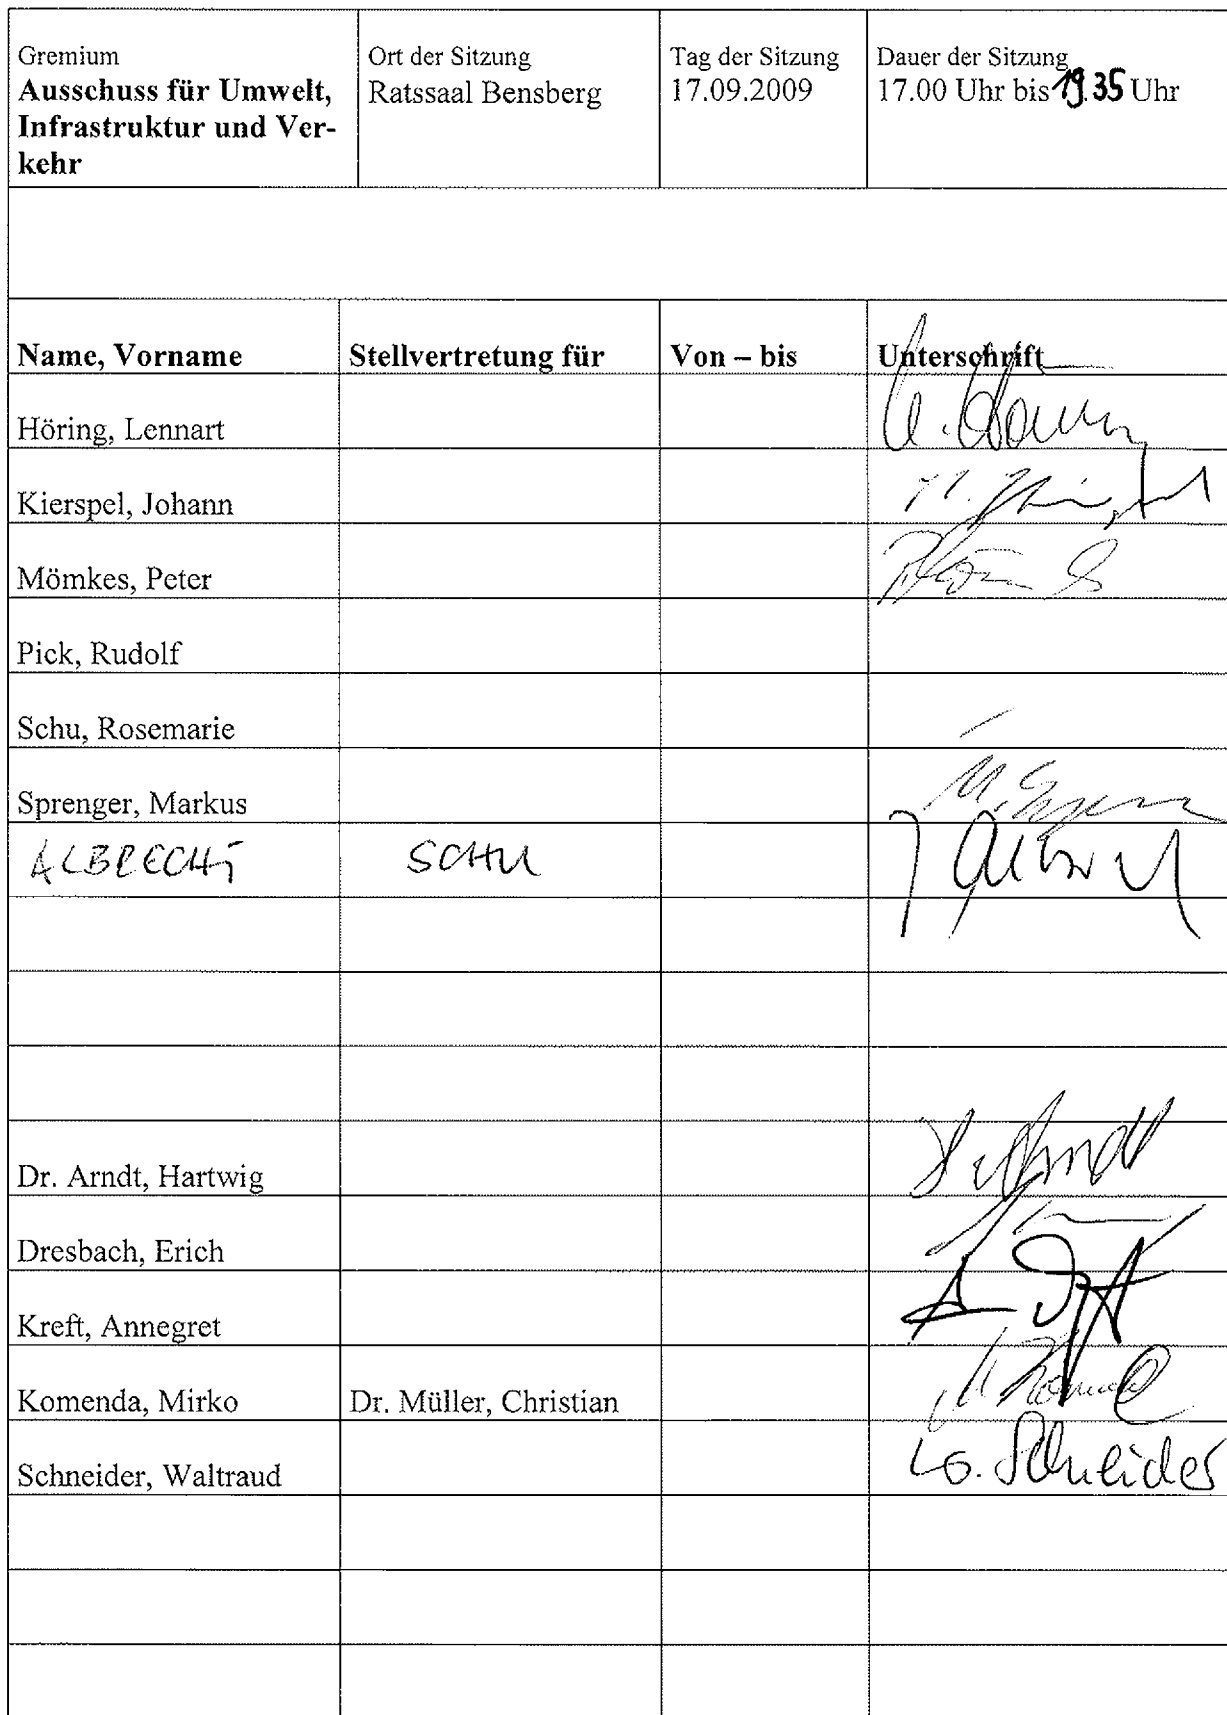 Gremium
Ausschuss für Umwelt,
Infrastruktur und Ver-
kehr
Ort der Sitzung
Ratssaal Bensberg
Tag der Sitzung
17.09.2009
Dauer der Sitzung
17.00 Uhr bis 19.35 Uhr
Name, Vorname Stellvertretung für Von – bis Unterschrift
Höring, Lennart
Kierspel, Johann
Mömkes, Peter
Pick, Rudolf
Schu, Rosemarie
Sprenger, Markus
ALBRECHT SCHU
Dr. Arndt, Hartwig
Dresbach, Erich
Kreft, Annegret
Komenda, Mirko Dr. Müller, Christian
Schneider, Waltraud Schneider